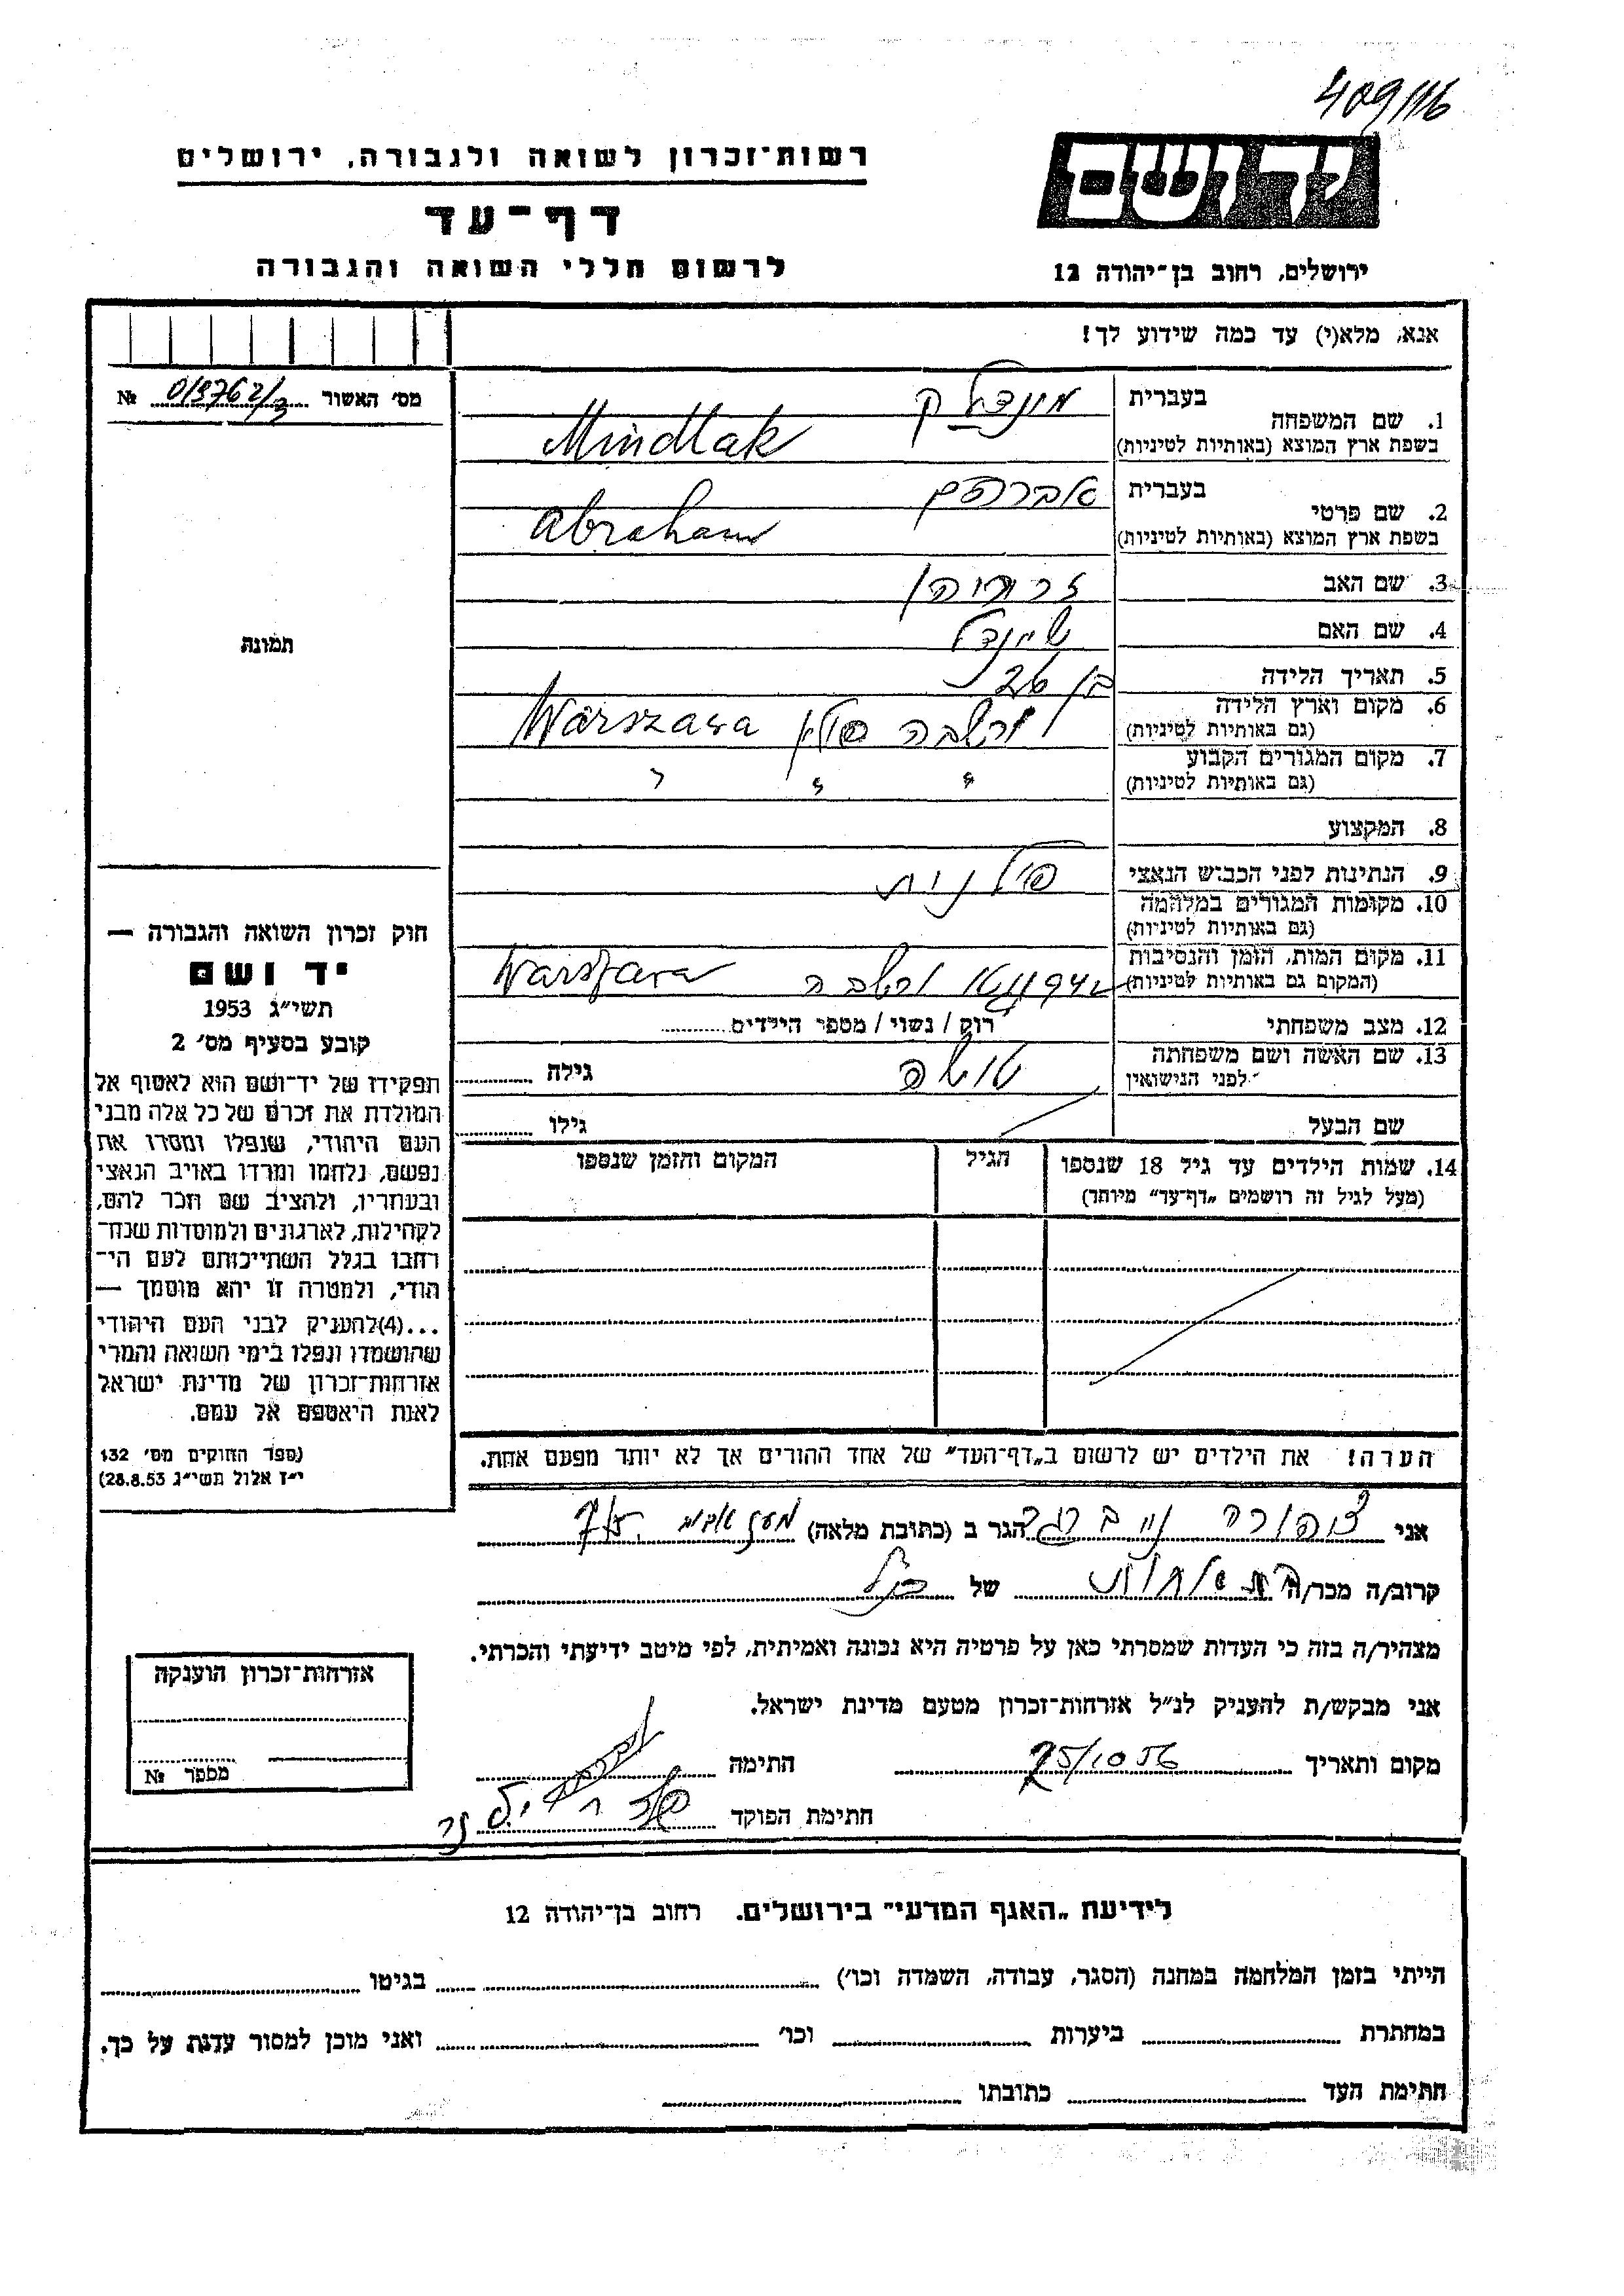 409/116
רשות־זכרון לשואה ולגבורה, ירושלים
יד ושם
דף־עד
לרשום חללי השואה והגבורה
ירושלים, רחוב בן־יהודה 12
אנא, מלא(י) עד כמה שידוע לך!
מס׳ האשור №
1. שם המשפחה
בעברית
בשפת ארץ המוצא (באותיות לטיניות)
Mindlak
2. שם פרטי
בעברית אברהם
בשפת ארץ המוצא (באותיות לטיניות)
Abraham
3. שם האב
4. שם האם שיינדל
5. תאריך הלידה בן
6. מקום וארץ הלידה
(גם באותיות לטיניות)
ורשבה פולין Warszawa
7. מקום המגורים הקבוע
(גם באותיות לטיניות)
" " "
8. המקצוע
9. הנתינות לפני הכבוש הנאצי פולנית
10. מקומות המגורים במלחמה
(גם באותיות לטיניות)
11. מקום המות, הזמן והנסיבות
(המקום גם באותיות לטיניות)
ורשבה Warszawa
12. מצב משפחתי רוק / נשוי / מספר הילדים
13. שם האשה ושם משפחתה
לפני הנישואין
גילה
שם הבעל
גילו
14. שמות הילדים עד גיל 18 שנספו
(מעל לגיל זה רושמים „דף־עד״ מיוחד)
הגיל
המקום והזמן שנספו
הערה! את הילדים יש לרשום ב„דף־העד״ של אחד ההורים אך לא יותר מפעם אחת.
תמונה
חוק זכרון השואה והגבורה —
יד ושם
תשי״ג 1953
קובע בסעיף מס׳ 2
תפקידו של יד־ושם הוא לאסוף אל
המולדת את זכרם של כל אלה מבני
העם היהודי, שנפלו ומסרו את
נפשם, נלחמו ומרדו באויב הנאצי
ובעוזריו, ולהציב שם וזכר להם,
לקהילות, לארגונים ולמוסדות שנח־
רבו בגלל השתייכותם לעם הי־
הודי, ולמטרה זו יהא מוסמך —
...(4)להעניק לבני העם היהודי
שהושמדו ונפלו בימי השואה והמרי
אזרחות־זכרון של מדינת ישראל
לאות היאספם אל עמם.
(ספר החוקים מס׳ 132
י״ז אלול תשי״ג 28.8.53)
אני צפורה הגר ב (כתובת מלאה)
קרוב/ה מכר/ה של
מצהיר/ה בזה כי העדות שמסרתי כאן על פרטיה היא נכונה ואמיתית, לפי מיטב ידיעתי והכרתי.
אני מבקש/ת להעניק לנ״ל אזרחות־זכרון מטעם מדינת ישראל.
מקום ותאריך 25/10 56 התימה
חתימת הפוקד
אזרחות־זכרון הוענקה
מספר №
לידיעת „האגף המדעי״ בירושלים. רחוב בן־יהודה 12
הייתי בזמן המלחמה במחנה (הסגר, עבודה, השמדה וכו׳) בגיטו
במחתרת ביערות וכו׳ ואני מוכן למסור עדות על כך.
חתימת העד כתובתו